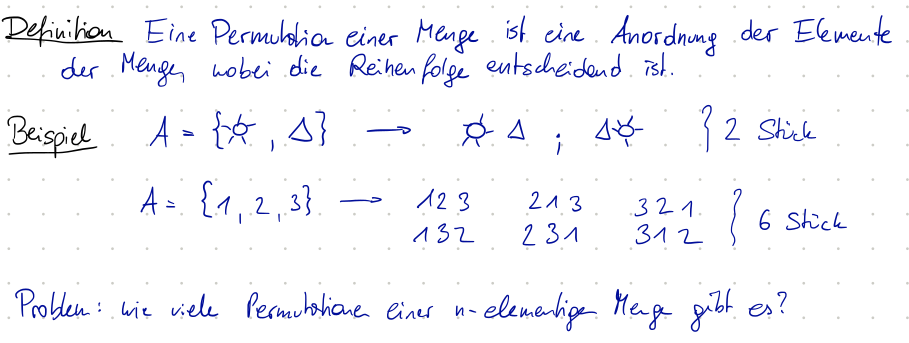 Definition Eine Permutation einer Menge ist eine Anordnung der Elemente
der Menge, wobei die Reihenfolge entscheidend ist.
Beispiel A = {☼, Δ} → ☼ Δ ; Δ ☼ } 2 Stück
A = {1, 2, 3} → 123 213 321
132 231 312 } 6 Stück
Problem: wie viele Permutationen einer n-elementigen Menge gibt es?